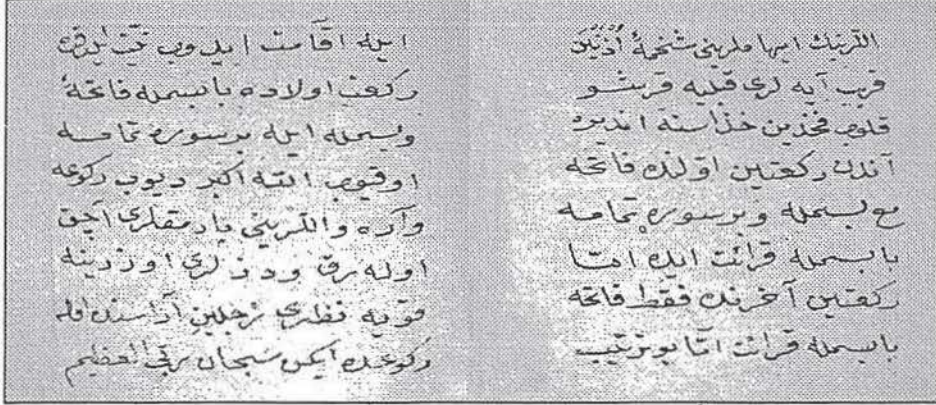 اللرینك ابهاملرینی شحمۀ أُذُنَیْن
قلوب فخذین حذاسنه اندیره
آندن ركعتین اولنده فاتحه
مع بسمله و بر سوره تمامه
با بسمله قرائت ایده امّا
ركعتین آخرنده فقط فاتحه
با بسمله قرائت امّا بو ترتیب
ایله اقامت ایدوب نیت
ركعت اولاده با بسمله فاتحۀ
و بسمله ایله بر سوره تمامه
اوقیوب الله اكبر دیوب ركوعه
واره و اللرینی پارمقلری آچق
اوله رق و دزلری اوزرینه
قویه نظری رجلین آراسنده اوله
ركوعده ایكن سبحان ربّی العظیم